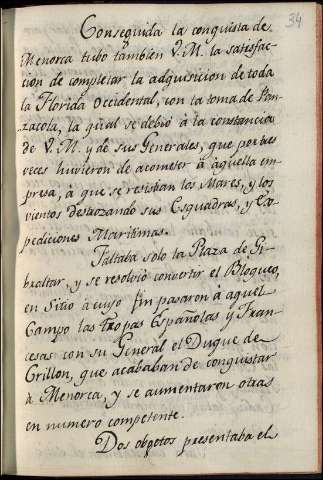 34
Conseguida la conquista de
Menorca tubo tambien V.M. la satisfac-
cion de completar la adquisicion de toda
la Florida Occidental, con la toma de Pan-
zacola, la qual se debió à la constancia
de V.M. y de sus Generales, que por tres
veces huvieron de acometer à aquella em-
presa, à que se resistian los Mares, y los
vientos destrozando sus Esquadras, y Ex-
pediciones Maritimas.
Faltaba solo la Plaza de Gi-
braltar, y se resolvió convertir el Bloqueo,
en Sitio à cuyo fin pasaron à aquel
Campo las tropas Españolas y Fran-
cesas con su General el Duque de
Crillon, que acababan de conquistar
à Menorca, y se aumentaron otras
en numero competente.
Dos obgetos presentaba el